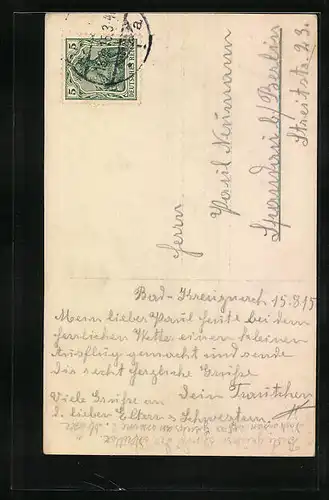 5 DEUTSCHES REICH 5
Herrn
Paul Neumann
Spandau b/Berlin
Streitstr. 23.
Bad-Kreuznach 15.8.15
Mein lieber Paul heute bei dem
herrlichen Wetter einen kleinen
Ausflug gemacht und sende
dir recht herzliche Grüße.
Viele Grüße an Dein Trautchen
d. lieben Eltern & Schwestern.